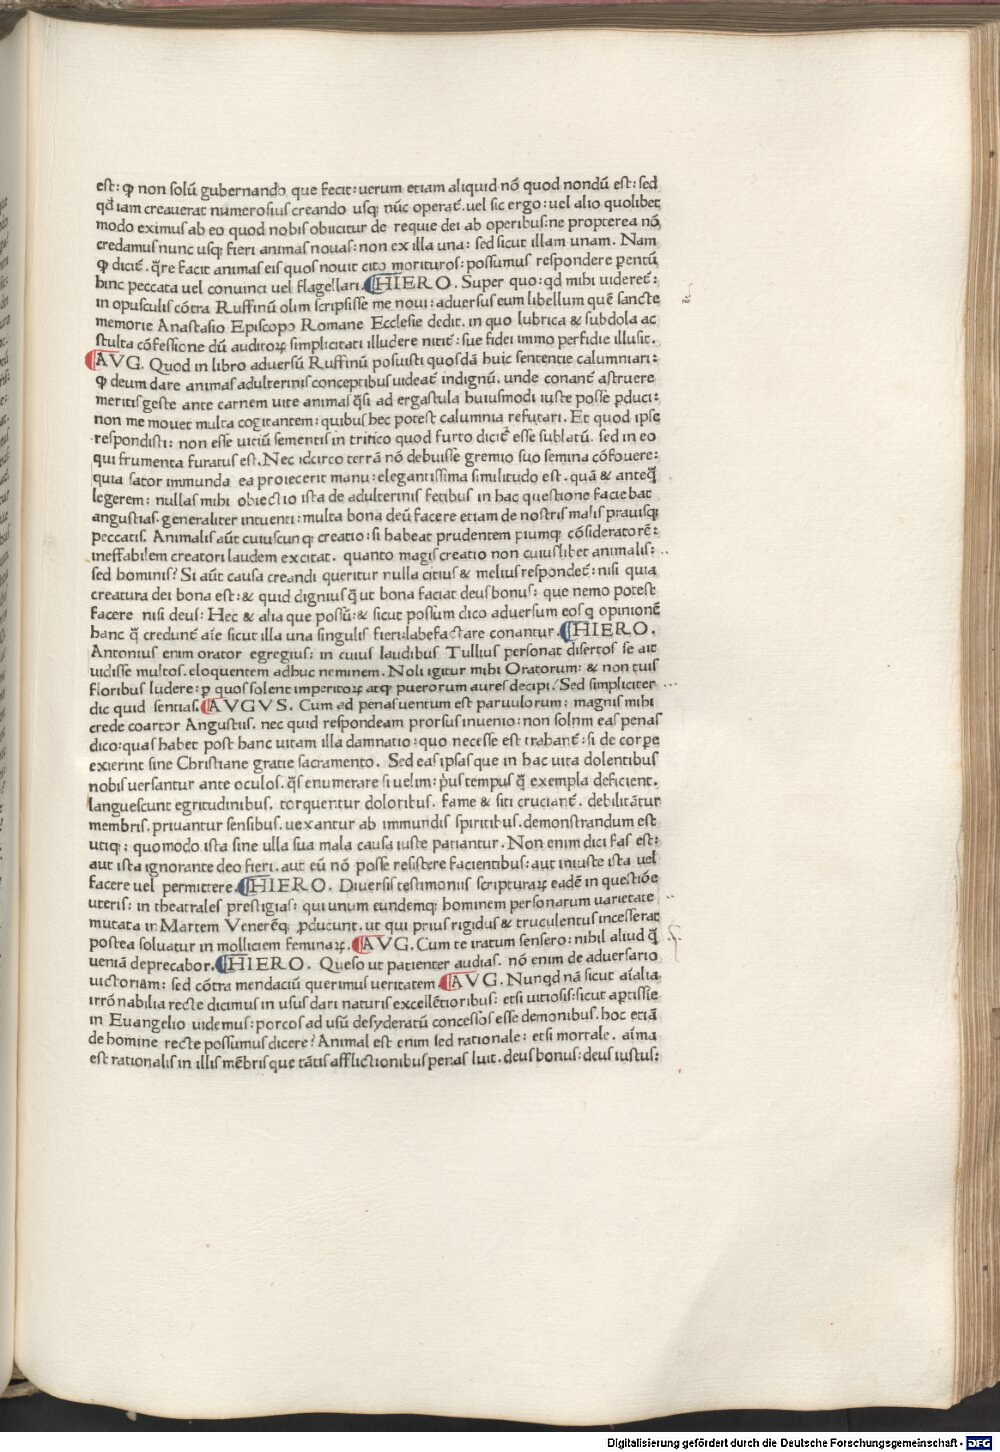 est: ꝙ non solũ gubernando que fecit: uerum etiam aliquid nõ quod nondũ est: sed
qđ iam creauerat numerosius creando usqꝫ nũc operat̃. uel sic ergo: uel alio quolibet
modo eximus ab eo quod nobis obiicitur de requie dei ab operibus: ne propterea nõ
credamus nunc usqꝫ fieri animas nouas: non ex illa una: sed sicut illam unam. Nam
ꝙ dicit̃. q̃re facit animas eis quos nouit cito morituros: possumus respondere pentũ
hinc peccata uel conuinci uel flagellari. HIERO. Super quo: qđ mihi uideret̃:
in opusculis cõtra Ruffinũ olim scripsisse me noui: aduersus eum libellum quẽ sancte
memorie Anastasio Episcopo Romane Ecclesie dedit. in quo lubrica & subdola ac
stulta cõfessione dũ auditoꝝ simplicitati illudere nitit̃: sue fidei immo perfidie illusit.
AVG. Quod in libro aduersũ Ruffinũ posuisti quosdã huic sententie calumniari:
ꝙ deum dare animas adulterinis conceptibus uideat̃ indignũ. unde conant̃ astruere
meritis geste ante carnem uite animas q̃si ad ergastula huiusmodi iuste posse ꝑduci:
non me mouet multa cogitantem: quibus hec potest calumnia refutari. Et quod ipse
respondisti: non esse uitiũ sementis in tritico quod furto dicit̃ esse sublatũ. sed in eo
qui frumenta furatus est. Nec idcirco terrã nõ debuisse gremio suo semina cõfouere:
quia sator immunda ea proiecerit manu: elegantissima similitudo est. quã & anteq̃
legerem: nullas mihi obiectio ista de adulterinis fetibus in hac questione faciebat
angustias. generaliter intuenti: multa bona deũ facere etiam de nostris malis prauisqꝫ
peccatis. Animalis aũt cuiuscunqꝫ creatio: si habeat prudentem piumqꝫ cõsideratorẽ:
ineffabilem creatori laudem excitat. quanto magis creatio non cuiuslibet animalis:
sed hominis? Si aũt causa creandi queritur nulla citius & melius respondet̃: nisi quia
creatura dei bona est: & quid dignius q̃ ut bona faciat deus bonus: que nemo potest
facere nisi deus: Hec & alia que possũ: & sicut possum dico aduersum eos q opinionẽ
hanc q̃ credunt aĩe sicut illa una singulis fieri: labefactare conantur. HIERO.
Antonius enim orator egregius: in cuius laudibus Tullius personat disertos se ait
uidisse multos. eloquentem adhuc neminem. Noli igitur mihi Oratorum: & non tuis
floribus ludere: ꝑ quos solent imperitoꝝ atqꝫ puerorum aures decipi: Sed simpliciter
dic quid sentias. AVGVS. Cum ad penas uentum est paruulorum: magnis mihi
crede coartor Angustiis. nec quid respondeam prorsus inuenio: non solnm eas penas
dico: quas habet post hanc uitam illa damnatio: quo necesse est trahant̃: si de corꝑe
exierint sine Christiane gratie sacramento. Sed eas ipsas que in hac uita dolentibus
nobis uersantur ante oculos. q̃s enumerare si uelim: p̃us tempus q̃ exempla deficient.
languescunt egritudinibus. torquentur doloribus. fame & siti cruciant̃. debilitãtur
membris. priuantur sensibus. uexantur ab immundis spiritibus. demonstrandum est
utiqꝫ: quomodo ista sine ulla sua mala causa iuste patiantur. Non enim dici fas est:
aut ista ignorante deo fieri. aut eũ nõ posse resistere facientibus: aut iniuste ista uel
facere uel permittere. HIERO. Diuersis testimoniis scripturaꝝ eadẽ in questiõe
uteris: in theatrales prestigias: qui unum eundemqꝫ hominem personarum uarietate
mutata in Martem Venerẽqꝫ ꝓducunt. ut qui prius rigidus & truculentus incesserat
postea soluatur in molliciem feminaꝝ. AVG. Cum te iratum sensero: nihil aliud q̃
ueniã deprecabor. HIERO. Queso ut patienter audias. nõ enim de aduersario
uictoriam: sed cõtra mendaciũ querimus ueritatem AVG. Nunqđ nã sicut aĩalia
irrõnabilia recte dicimus in usus dari naturis excellẽtioribus: etsi uitiosis: sicut aꝑtissĩe
in Euangelio uidemus: porcos ad usũ desyderatũ concessos esse demonibus. hoc etiã
de homine recte possumus dicere? Animal est enim sed rationale: etsi mortale. aĩma
est rationalis in illis mẽbris que tãtis afflictionibus penas luit. deus bonus: deus iustus:
Digitalisierung gefördert durch die Deutsche Forschungsgemeinschaft - DFG